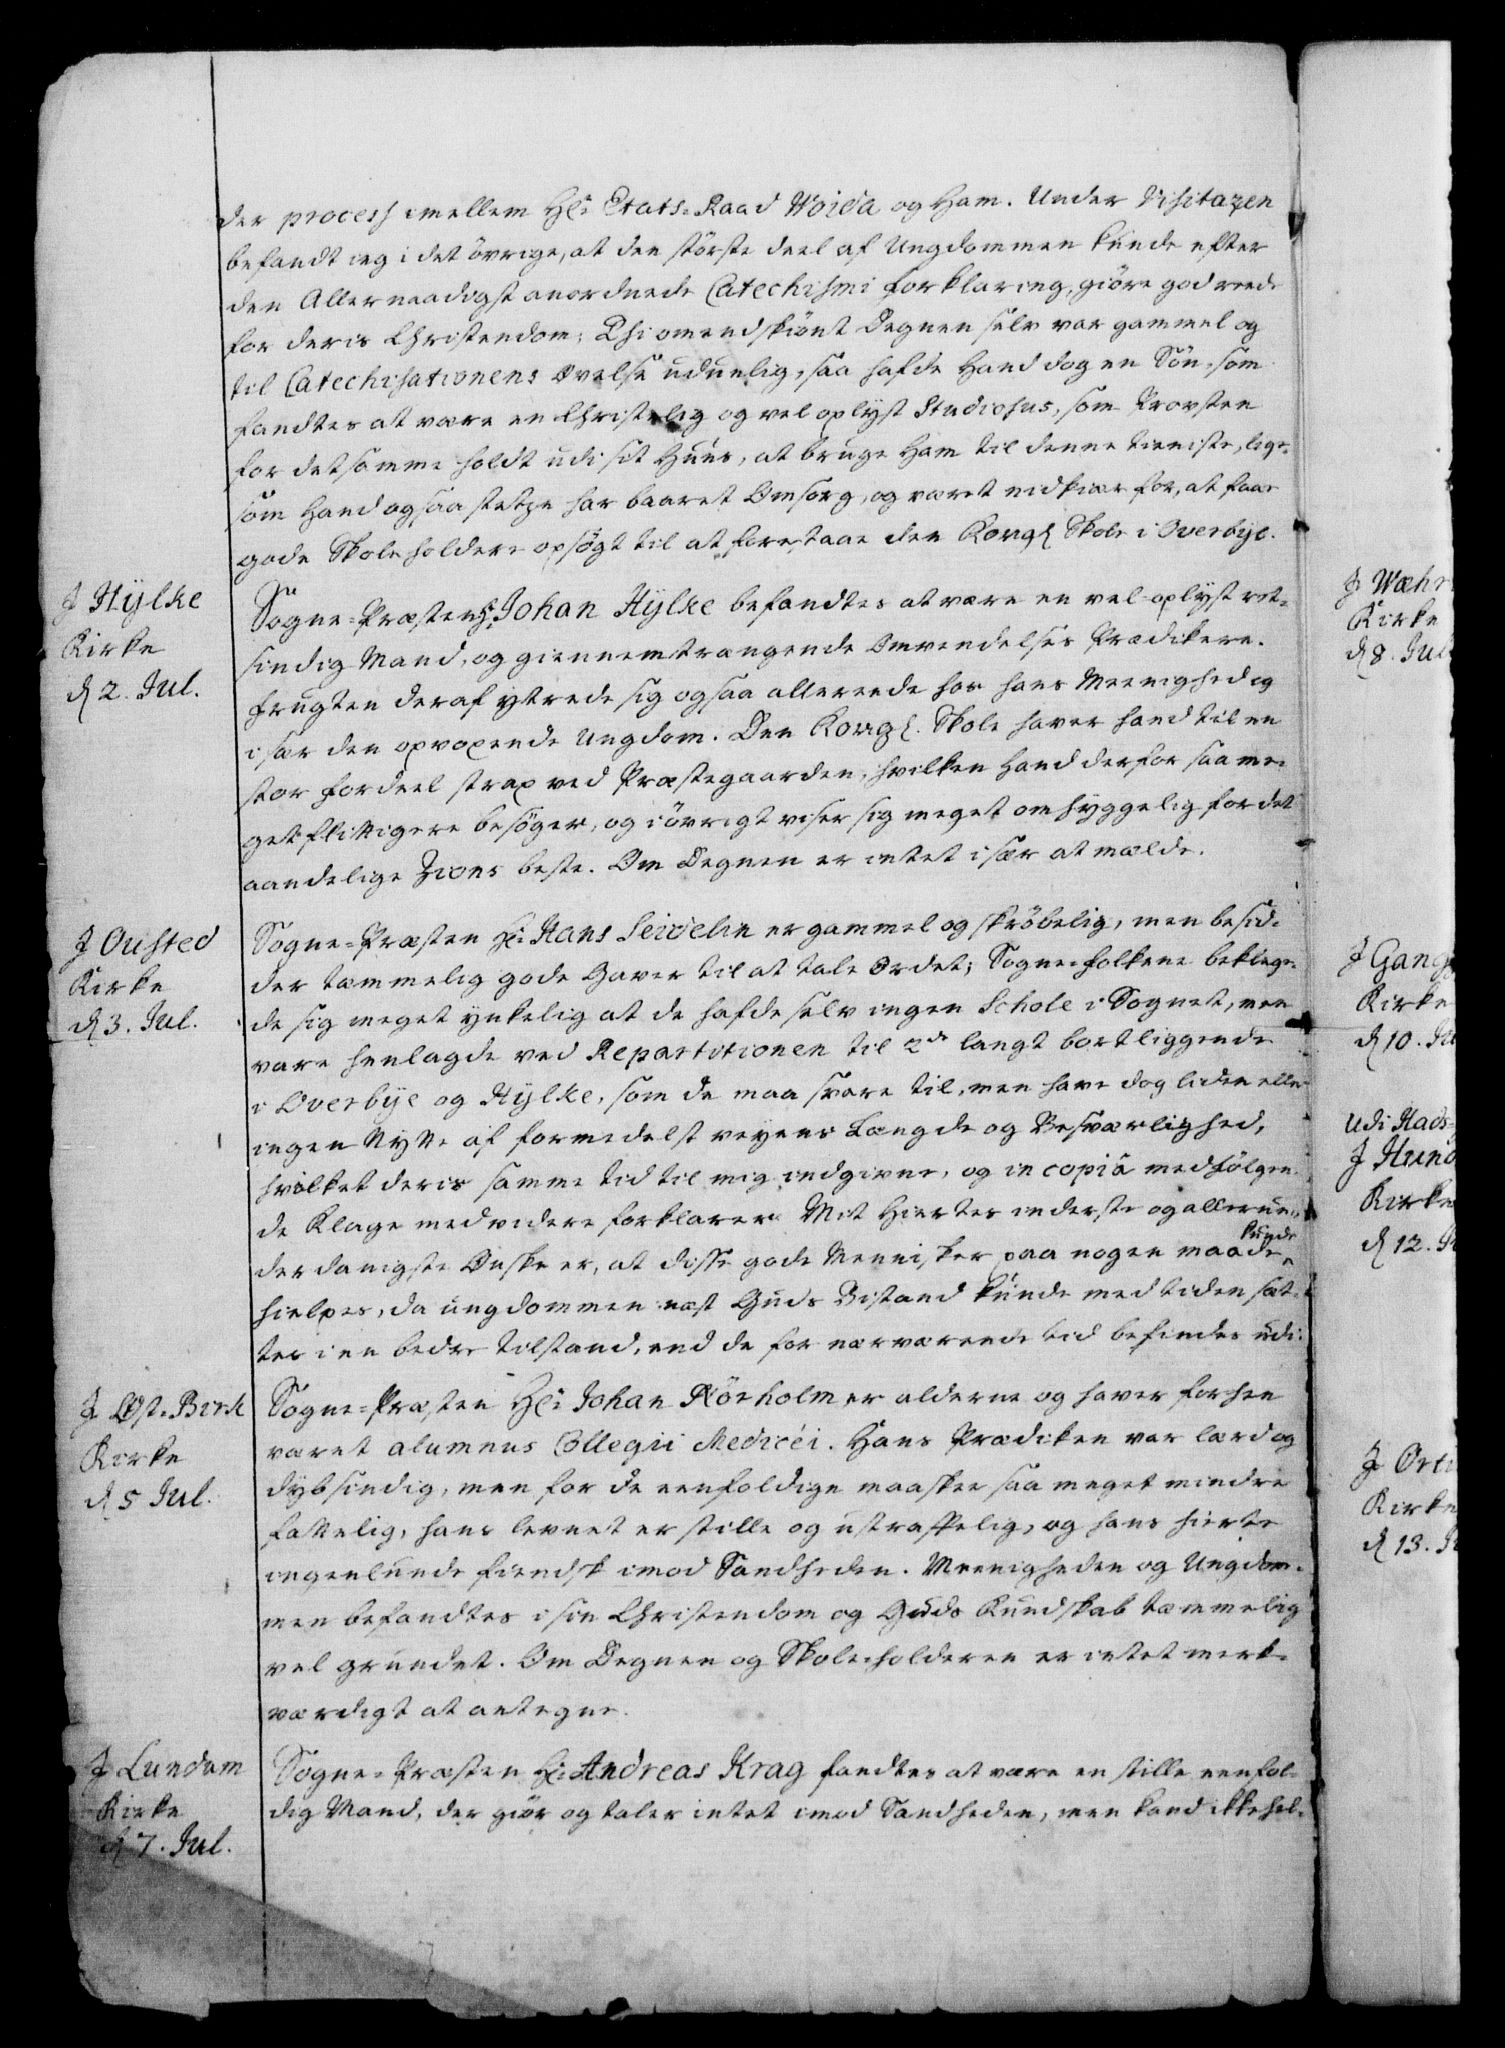 der process imellem Hl: Etats-Raad Woida og Ham. Under Visitazen
befandt ieg i det övrige, at den störste deel af Ungdommen kunde efter
den Allernaadigst anordnede Catechismi forklaring, giöre god reede
for deris Christendom; Thi omendskiönt Degnen selv var gammel og
til Catechisationens Øvelse uduelig, saa hafde Hand dog en Sön, som
fandtes at være en Christelig og vel oplyst Studiosus, som Provsten
for det samme holdt udi sit Huus, at bruge Ham til denne tieniste, lige-
som Hand ogsaa stetze har baaret Omsorg, og været nidkiær for, at faae
gode Skoleholdere opsögt til at forestaae den Kongl Skole i Overbye.
J Hylke
Kirke
d 2. Jul.
Sogne-Præsten H. Johan Hylke befandtes at være en vel-oplyst ret-
sindig Mand, og giennemtrængende Omvendelses Prædikere.
Frugten deraf yttrede sig ogsaa allereede hos hans Meenighed og
i sær den opvoxende Ungdom. Den Kongl. Skole haver hand til en
stor fordeel strax ved Præstegaarden, hvilken Hand derfor saa me-
get flittigere besöger, og i övrigt viser sig meget omhyggelig for det
aandelige Zions beste. Om Degnen er intet i sær at mælde.
J Ousted
Kirke
d 3. Jul.
Sogne-Præsten Hl: Hans Seidelin er gammel og skröbelig, men besid-
der temmelig gode Gaver til at tale Ordet; Sogne-folkene beklage-
de sig meget ynkelig at de hafde selv ingen Schole i Sognet, men
vare henlagde ved Repartitionen til 2de langt bortliggende
i Overbye og Hylke, som de maa svare til, men have dog liden eller
ingen Nytte af formedelst veyens Længde og Besværlighed,
hvilket deris samme tid til mig indgivne, og in copiâ medfölgen-
de Klage med videre forklarer. Mit Hiertes inderste og allerun-
derdanigste Ønske er, at disse gode Mennisker paa nogen maade kunde
hielpes, da ungdommen næst Guds Bistand kunde med tiden sæt-
tes i en bedre tilstand, end de for nærværende tid befindes udi.
J Øst-Birk
Kirke
d 5 Jul.
Sogne-Præsten Hl: Johan Röeholm er alderne og haver forhen
været alumnus Collegii Medicéi. Hans Prædiken var lærd og
dybsindig, men for de eenfoldige maaskee saa meget mindre
fattelig, hans levnet er stille og ustraffelig, og hans hierte
ingenlunde fiendsk imod Sandheden. Meenigheden og Ungdom-
men befandtes i sin Christendom og Guds Kundskab temmelig
vel grundet. Om Degnen og Skoleholderen er intet merk-
værdigt at antegne.
J Lundum
Kirke
d 7. Jul.
Sogne-Præsten Hl: Andreas Krag fandtes at være en stille eenfol-
dig Mand, der giör og taler intet imod Sandheden, men kand ikke hel-
J
Kirke
d 8. Jul
J
Kirke
d 10.
Udi Hads-
J
Kirke
d 12.
J
Kirke
d 13.